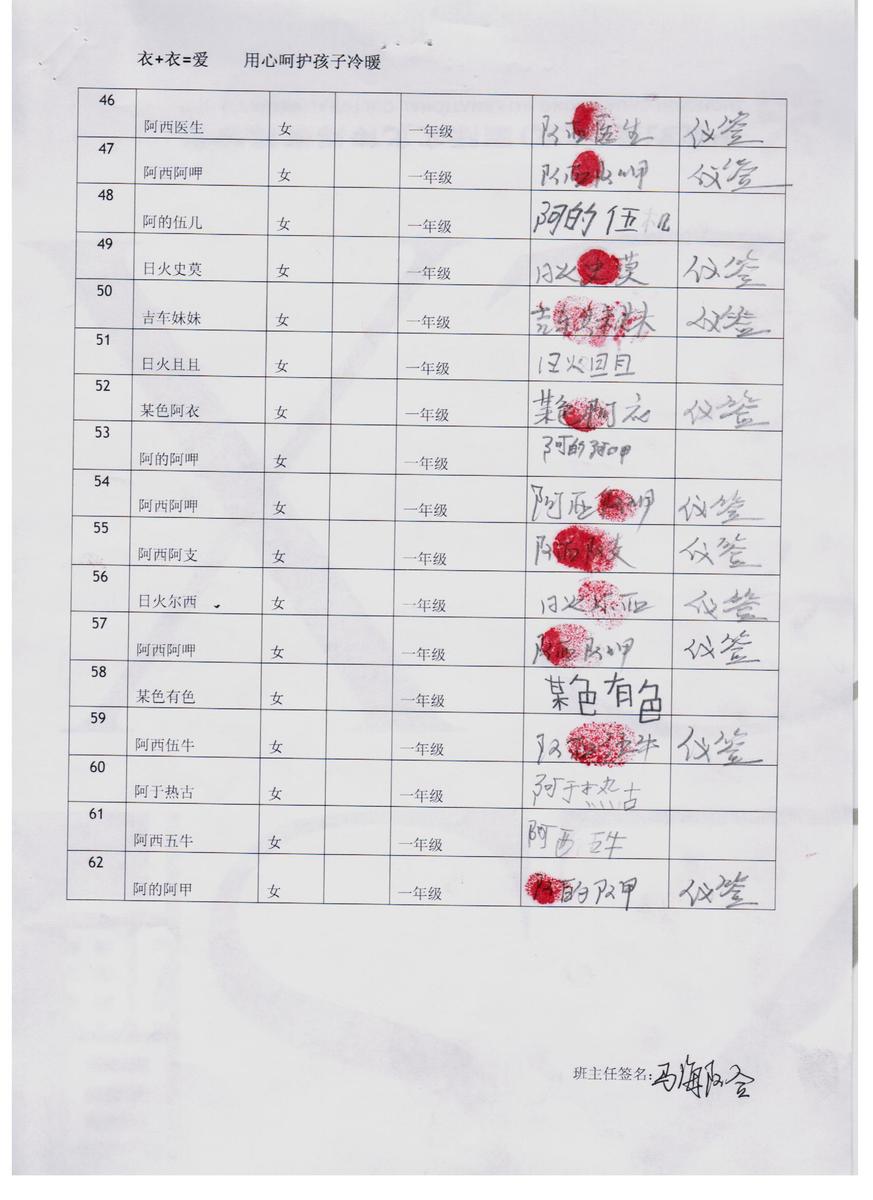 衣+衣=爱 用心呵护孩子冷暖
46 阿西医生 女 一年级 阿西医生 代签
47 阿西阿呷 女 一年级 阿西阿呷 代签
48 阿的伍儿 女 一年级 阿的伍机
49 日火史莫 女 一年级 日火史莫 代签
50 吉车妹妹 女 一年级 吉车妹妹 代签
51 日火且且 女 一年级 日火且且
52 某色阿衣 女 一年级 某色阿衣 代签
53 阿的阿呷 女 一年级 阿的阿呷
54 阿西阿呷 女 一年级 阿西阿呷 代签
55 阿西阿支 女 一年级 阿西阿支 代签
56 日火尔西 女 一年级 日火尔西 代签
57 阿西阿呷 女 一年级 阿西阿呷 代签
58 某色有色 女 一年级 某色有色
59 阿西伍牛 女 一年级 阿西伍牛 代签
60 阿于热古 女 一年级 阿于热古
61 阿西五牛 女 一年级 阿西五牛
62 阿的阿甲 女 一年级 阿的阿甲 代签
班主任签名：马海阿合